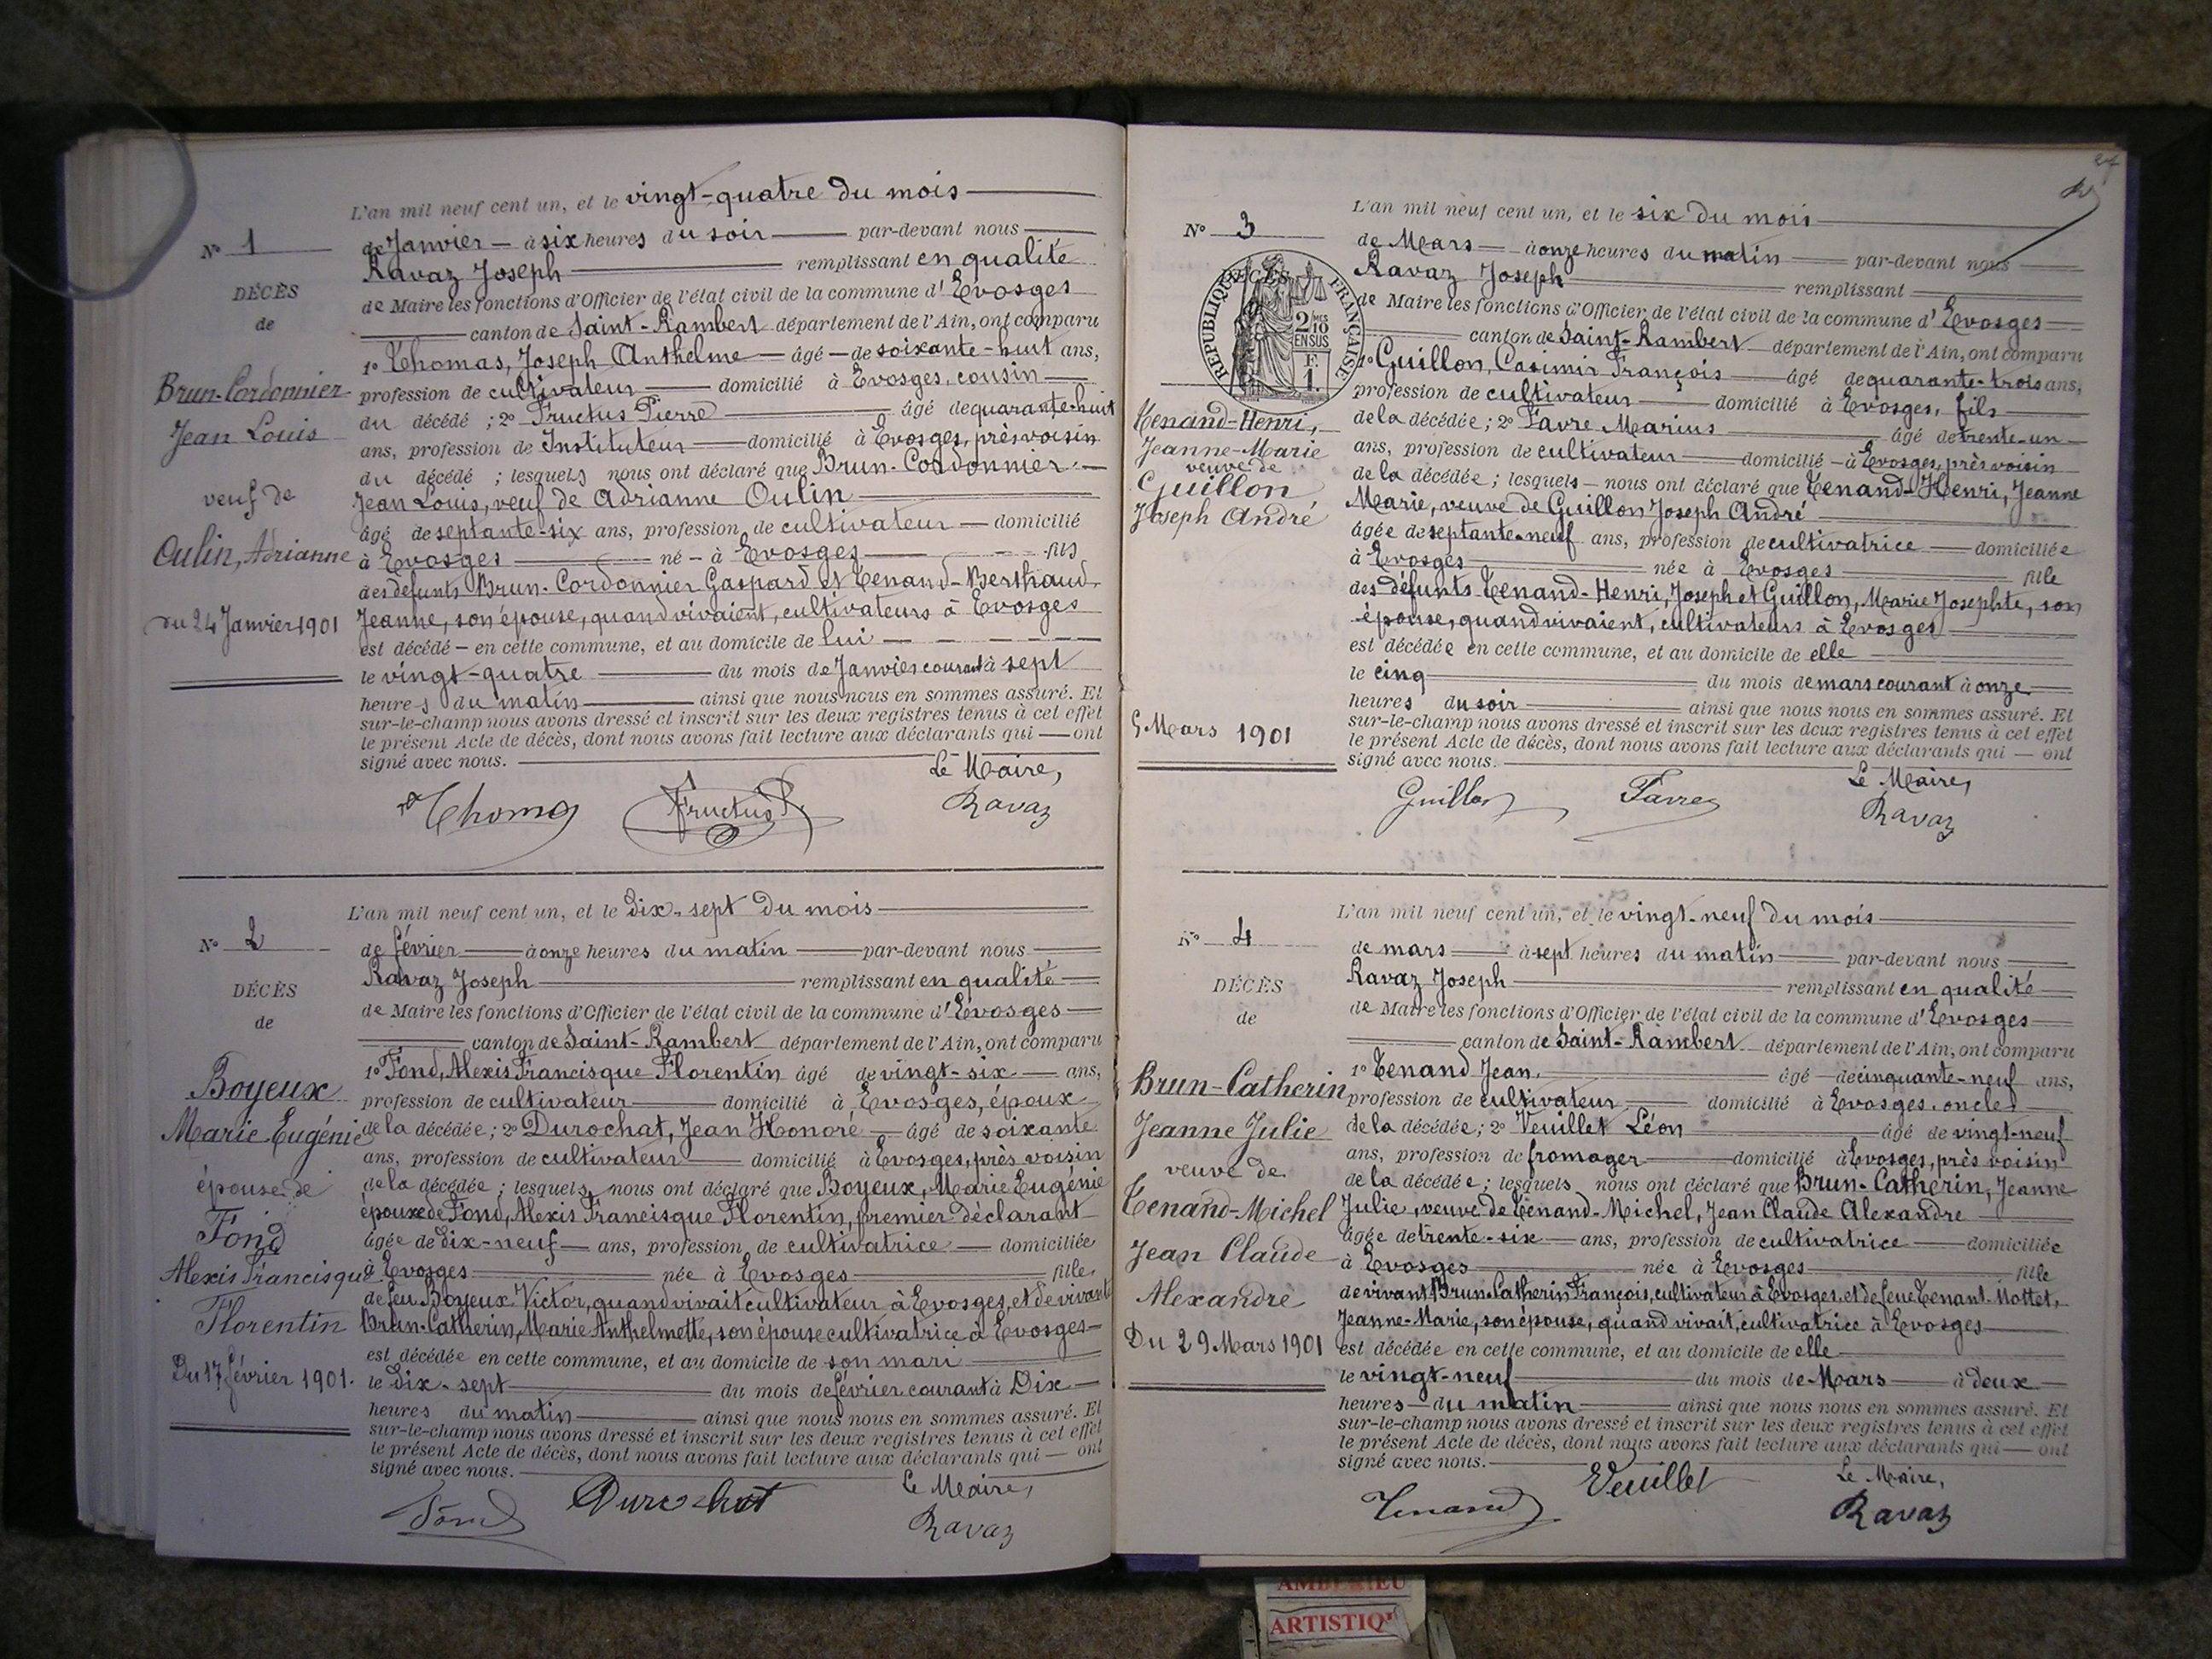 L'an mil neuf cent un, et le vingt-quatre du mois
N° 1
de Janvier — à six heures du soir — par-devant nous
Ravaz Joseph — remplissant en qualité
DÉCÈS
de Maire les fonctions d'Officier de l'état civil de la commune d'Evosges
de
canton de Saint-Rambert département de l'Ain, ont comparu
1° Thomas, Joseph Anthelme — âgé — de soixante-huit ans,
Brun-Cordonnier
profession de cultivateur — domicilié à Evosges, cousin
Jean Louis
du décédé ; 2° Fructus Pierre — âgé de quarante-huit
ans, profession de Instituteur — domicilié à Evosges, près voisin
du décédé ; lesquels nous ont déclaré que Brun-Cordonnier
veuf de
Jean Louis, veuf de Adrianne Oulin
âgé de septante-six ans, profession de cultivateur — domicilié
Oulin, Adrianne
à Evosges — né — à Evosges — fils
des défunts Brun-Cordonnier Gaspard et Tenand-Berthaud
du 24 Janvier 1901
Jeanne, son épouse, quand vivaient, cultivateurs à Evosges
est décédé — en cette commune, et au domicile de lui
le vingt-quatre — du mois de Janvier courant à sept
heures du matin — ainsi que nous nous en sommes assuré. Et
sur-le-champ nous avons dressé et inscrit sur les deux registres tenus à cet effet
le présent Acte de décès, dont nous avons fait lecture aux déclarants qui — ont
signé avec nous.
Le Maire,
Thomas Fructus P. Ravaz
L'an mil neuf cent un, et le dix-sept du mois
N° 2
de février — à onze heures du matin — par-devant nous
Ravaz Joseph — remplissant en qualité
DÉCÈS
de Maire les fonctions d'Officier de l'état civil de la commune d'Evosges
de
canton de Saint-Rambert département de l'Ain, ont comparu
1° Fond, Alexis Francisque Florentin âgé de vingt-six — ans,
Boyeux
profession de cultivateur — domicilié à Evosges, époux
Marie Eugénie
de la décédée ; 2° Durochat, Jean Honoré — âgé de soixante
ans, profession de cultivateur — domicilié à Evosges, près voisin
épouse de
de la décédée ; lesquels nous ont déclaré que Boyeux, Marie Eugénie
Fond
épouse de Fond, Alexis Francisque Florentin, premier déclarant
âgée de dix-neuf — ans, profession de cultivatrice — domiciliée
Alexis Francisque
à Evosges — née à Evosges — fille
de feu Boyeux Victor, quand vivait cultivateur à Evosges, et de vivante
Florentin
Brun-Catherin, Marie Anthelmette, son épouse cultivatrice à Evosges
est décédée en cette commune, et au domicile de son mari
Du 17 février 1901.
le dix-sept — du mois de février courant à Dix
heures du matin — ainsi que nous nous en sommes assuré. Et
sur-le-champ nous avons dressé et inscrit sur les deux registres tenus à cet effet
le présent Acte de décès, dont nous avons fait lecture aux déclarants qui — ont
signé avec nous.
Le Maire,
Fond Durochat Ravaz
27
L'an mil neuf cent un, et le six du mois
N° 3
de Mars — à onze heures du matin — par-devant nous
Ravaz Joseph — remplissant
RÉPUBLIQUE FRANÇAISE
2/10 MES EN SUS
F. 1.
de Maire les fonctions d'Officier de l'état civil de la commune d'Evosges
canton de Saint-Rambert département de l'Ain, ont comparu
1° Guillon, Casimir François — âgé de quarante-trois ans,
profession de cultivateur — domicilié à Evosges, fils
Tenand-Henri,
de la décédée ; 2° Favre Marius — âgé de trente-un
Jeanne-Marie
ans, profession de cultivateur — domicilié — à Evosges, près voisin
veuve de
de la décédée ; lesquels — nous ont déclaré que Tenand-Henri, Jeanne
Guillon
Marie, veuve de Guillon Joseph André
Joseph André
âgée de septante-neuf ans, profession de cultivatrice — domiciliée
à Evosges — née à Evosges — fille
des défunts Tenand-Henri, Joseph et Guillon, Marie Josephte, son
épouse, quand vivaient, cultivateurs à Evosges
est décédée en cette commune, et au domicile de elle
le cinq — du mois de mars courant à onze
heures du soir — ainsi que nous nous en sommes assuré. Et
5 Mars 1901
sur-le-champ nous avons dressé et inscrit sur les deux registres tenus à cet effet
le présent Acte de décès, dont nous avons fait lecture aux déclarants qui — ont
signé avec nous.
Le Maire,
Guillon Favre Ravaz
L'an mil neuf cent un, et le vingt-neuf du mois
N° 4
de mars — à sept heures du matin — par-devant nous
Ravaz Joseph — remplissant en qualité
DÉCÈS
de Maire les fonctions d'Officier de l'état civil de la commune d'Evosges
de
canton de Saint-Rambert département de l'Ain, ont comparu
1° Tenand Jean, — âgé — de cinquante-neuf ans,
Brun-Catherin
profession de cultivateur — domicilié à Evosges, oncle
Jeanne Julie
de la décédée ; 2° Veuillet Léon — âgé de vingt-neuf
ans, profession de fromager — domicilié à Evosges, près voisin
veuve de
de la décédée ; lesquels nous ont déclaré que Brun-Catherin, Jeanne
Tenand-Michel
Julie, veuve de Tenand-Michel, Jean Claude Alexandre
âgée de trente-six — ans, profession de cultivatrice — domiciliée
Jean Claude
à Evosges — née à Evosges — fille
Alexandre
de vivant Brun-Catherin François, cultivateur à Evosges, et de feue Tenant-Mottet,
Jeanne-Marie, son épouse, quand vivait, cultivatrice à Evosges
Du 29 Mars 1901
est décédée en cette commune, et au domicile de elle
le vingt-neuf — du mois de Mars — à deux
heures — du matin — ainsi que nous nous en sommes assuré. Et
sur-le-champ nous avons dressé et inscrit sur les deux registres tenus à cet effet
le présent Acte de décès, dont nous avons fait lecture aux déclarants qui — ont
signé avec nous.
Le Maire,
Tenand Veuillet Ravaz
AMBERIEU
ARTISTIQ